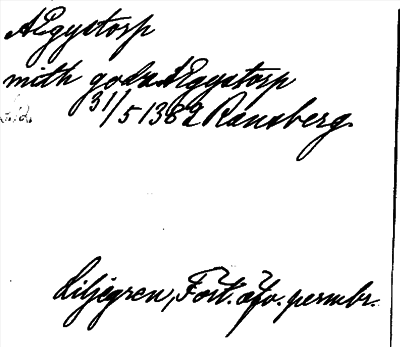 Ægystorp
mith godz Ægystorp
31/5 1382 Ransberg.
Liljegren, Fört. öfv. permbr.